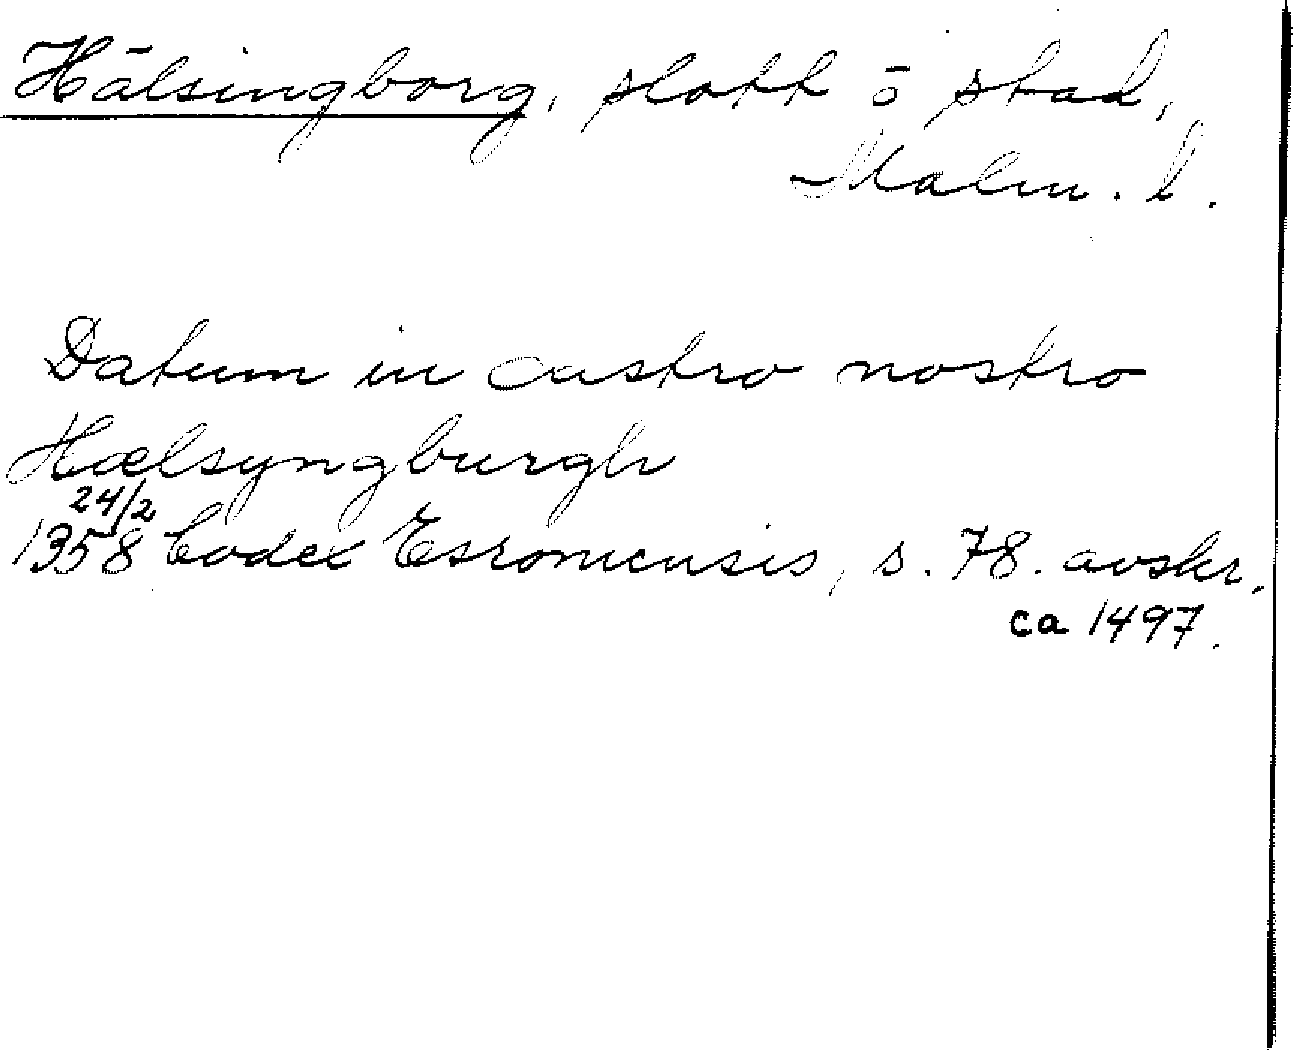 Hälsingborg, slott ö stad,
Malm. l.
Datum in castro nostro
Hælsyngburgh
24/2
1358 Codex Esromensis, s. 78. avskr.
ca 1497.